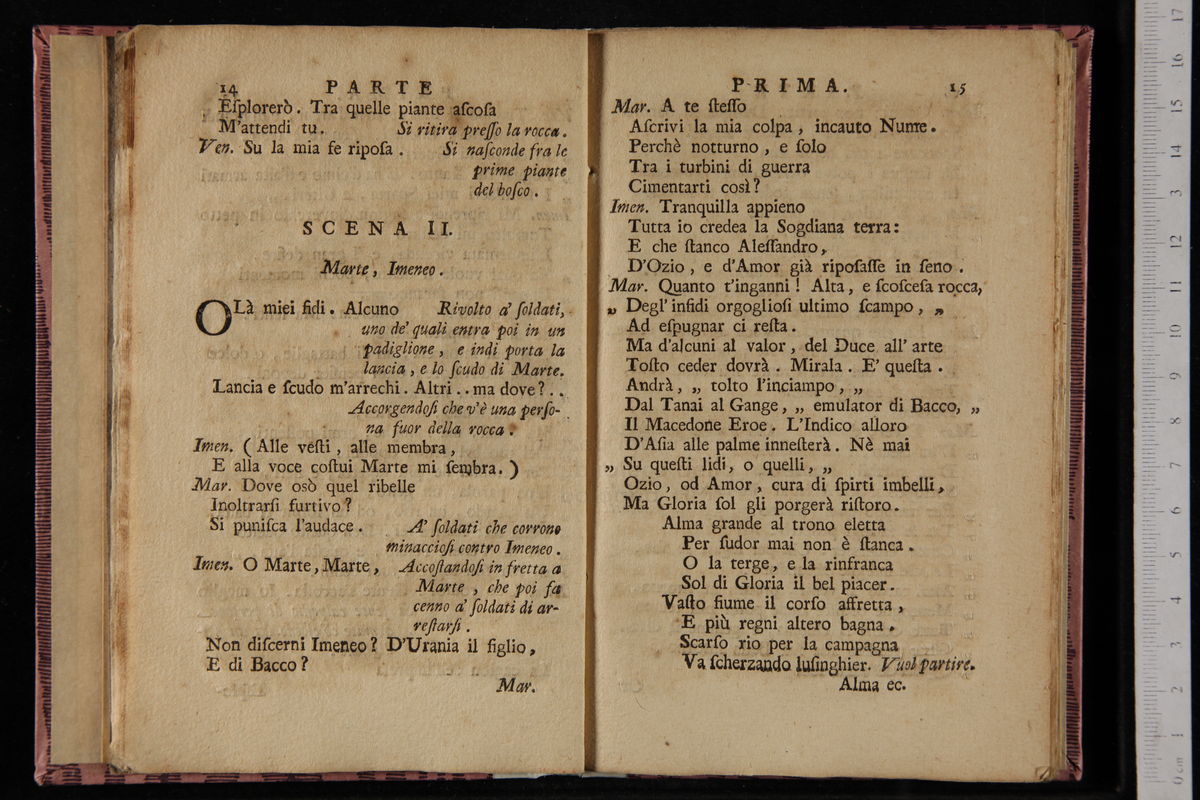 14 PARTE
Eſplorerò. Tra quelle piante aſcoſa
M'attendi tu. Si ritira preſſo la rocca.
Ven. Su la mia fe ripoſa. Si naſconde fra le
prime piante
del boſco.
SCENA II.
Marte, Imeneo.
OLà miei fidi. Alcuno Rivolto a' ſoldati,
uno de' quali entra poi in un
padiglione, e indi porta la
lancia, e lo ſcudo di Marte.
Lancia e ſcudo m'arrechi. Altri .. ma dove? ..
Accorgendoſi che v'è una perſo-
na fuor della rocca.
Imen. (Alle veſti, alle membra,
E alla voce coſtui Marte mi ſembra.)
Mar. Dove osò quel ribelle
Inoltrarſi furtivo?
Si puniſca l'audace. A' ſoldati che corrono
minaccioſi contro Imeneo.
Imen. O Marte, Marte, Accoſtandoſi in fretta a
Marte, che poi fa
cenno a' ſoldati di ar-
reſtarſi.
Non diſcerni Imeneo? D'Urania il figlio,
E di Bacco?
Mar.
PRIMA. 15
Mar. A te ſteſſo
Aſcrivi la mia colpa, incauto Nume.
Perchè notturno, e ſolo
Tra i turbini di guerra
Cimentarti così?
Imen. Tranquilla appieno
Tutta io credea la Sogdiana terra:
E che ſtanco Aleſſandro,
D'Ozio, e d'Amor già ripoſaſſe in ſeno.
Mar. Quanto t'inganni! Alta, e ſcoſceſa rocca,
„ Degl' infidi orgoglioſi ultimo ſcampo, „
Ad eſpugnar ci reſta.
Ma d'alcuni al valor, del Duce all' arte
Toſto ceder dovrà. Mirala. E' queſta.
Andrà, „ tolto l'inciampo, „
Dal Tanai al Gange, „ emulator di Bacco, „
Il Macedone Eroe. L'Indico alloro
D'Aſia alle palme inneſterà. Nè mai
„ Su queſti lidi, o quelli, „
Ozio, od Amor, cura di ſpirti imbelli,
Ma Gloria ſol gli porgerà riſtoro.
Alma grande al trono eletta
Per ſudor mai non è ſtanca.
O la terge, e la rinfranca
Sol di Gloria il bel piacer.
Vaſto fiume il corſo affretta,
E più regni altero bagna.
Scarſo rio per la campagna
Va ſcherzando luſinghier. Vuol partire.
Alma ec.
17
16
15
14
13
12
11
10
9
8
7
6
5
4
3
2
1
0 cm